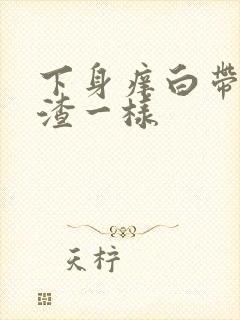 下身痒白带
渣一样
天柠